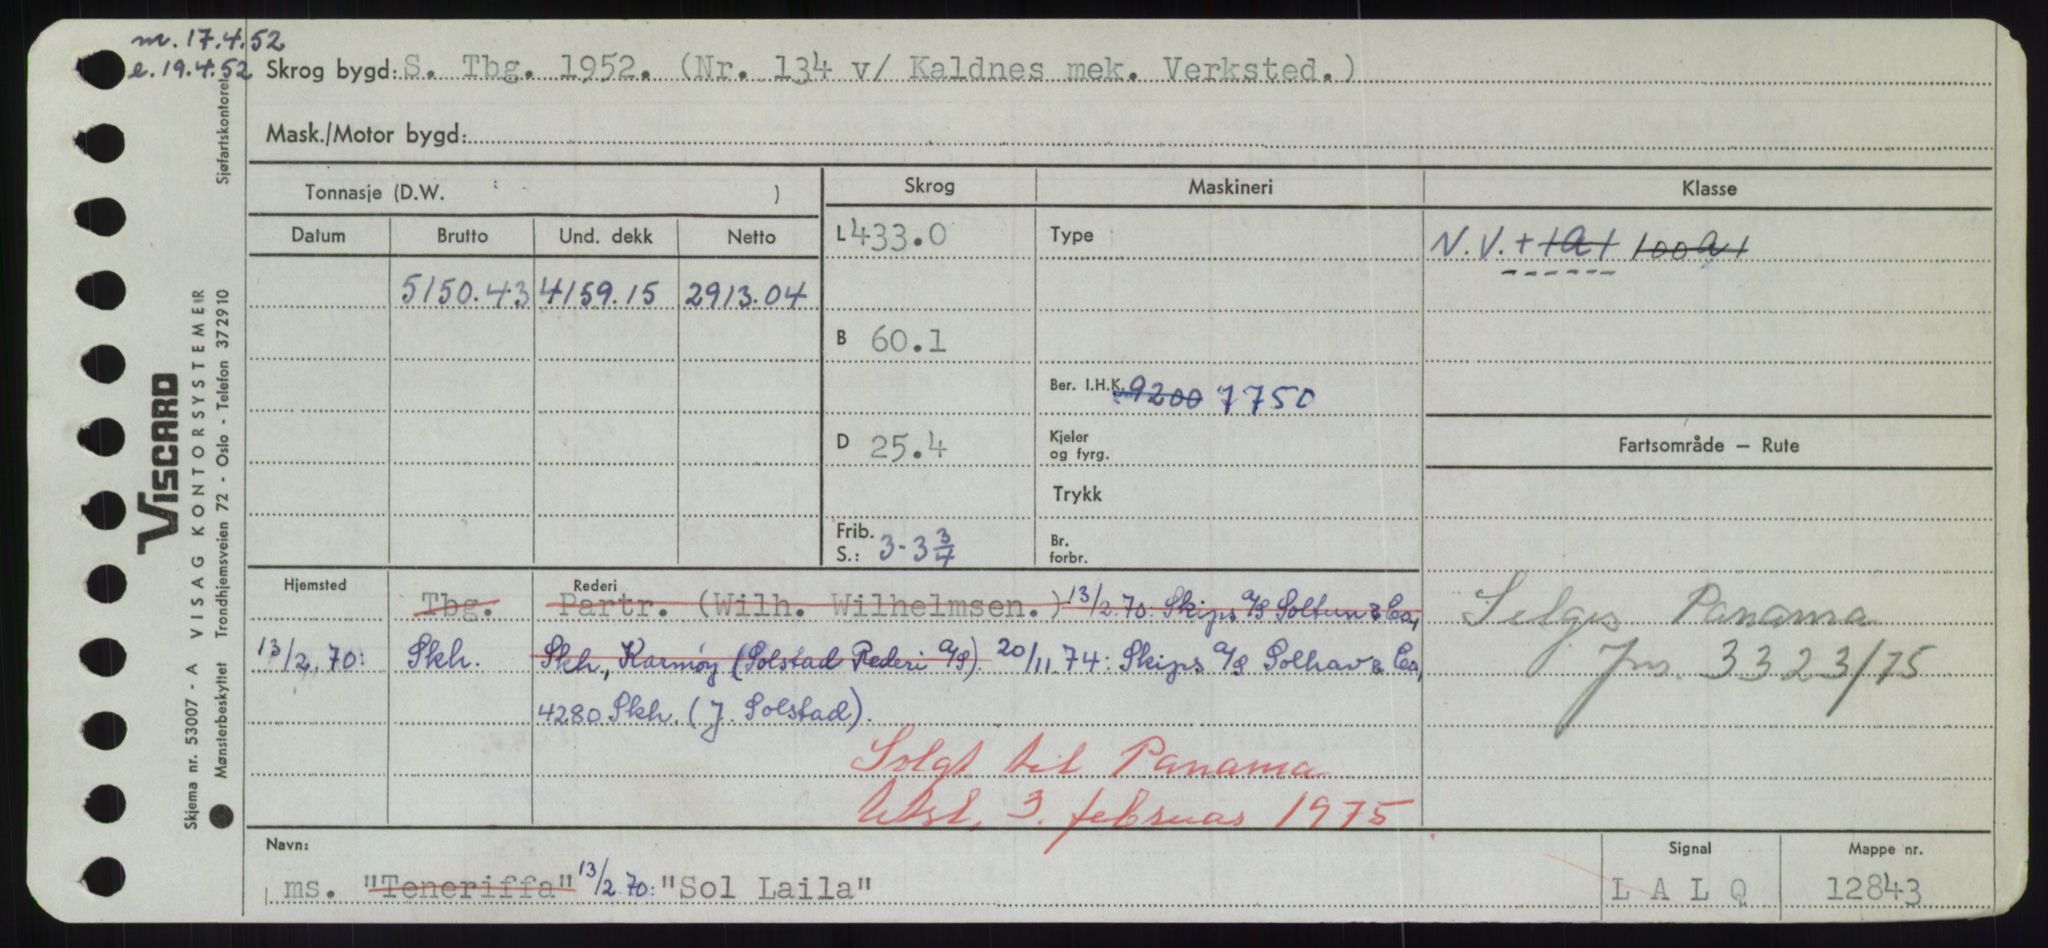 m. 17.4.52
e. 19.4.52 Skrog bygd: S. Tbg. 1952. (Nr. 134 v/ Kaldnes mek. Verksted.)
Mask./Motor bygd:
Tonnasje (D.W. )
Skrog
Maskineri
Klasse
Datum Brutto Und. dekk Netto
L 433.0
Type
N.V. + 1A1 100A1
5150.43 4159.15 2913.04
B 60.1
Ber. I.H.K. 9200 7750
D 25.4
Kjeler
og fyrg.
Fartsområde — Rute
Trykk
Frib.
S.: 3-3 3/4
Br.
forbr.
Hjemsted
Rederi
Tbg. Partr. (Wilh. Wilhelmsen.) 13/2.70: Skips A/S Soltun & Co,
13/2.70: Skh. Skh, Karmøy (Solstad Rederi A/S). 20/11.74: Skips A/S Solhav & Co,
4280 Skh. (J. Solstad).
Selges Panama
Jnr. 3323/75
Solgt til Panama
Utsl. 3. februar 1975
Navn:
Signal
Mappe nr.
ms. "Teneriffa" 13/2.70: "Sol Laila"
L A L Q
12843
Sjøfartskontoret
VISCARD
VISAG KONTORSYSTEMEIR
Trondhjemsveien 72 - Oslo - Telefon 372910
Skjema nr. 53007 - A
Mønsterbeskyttet